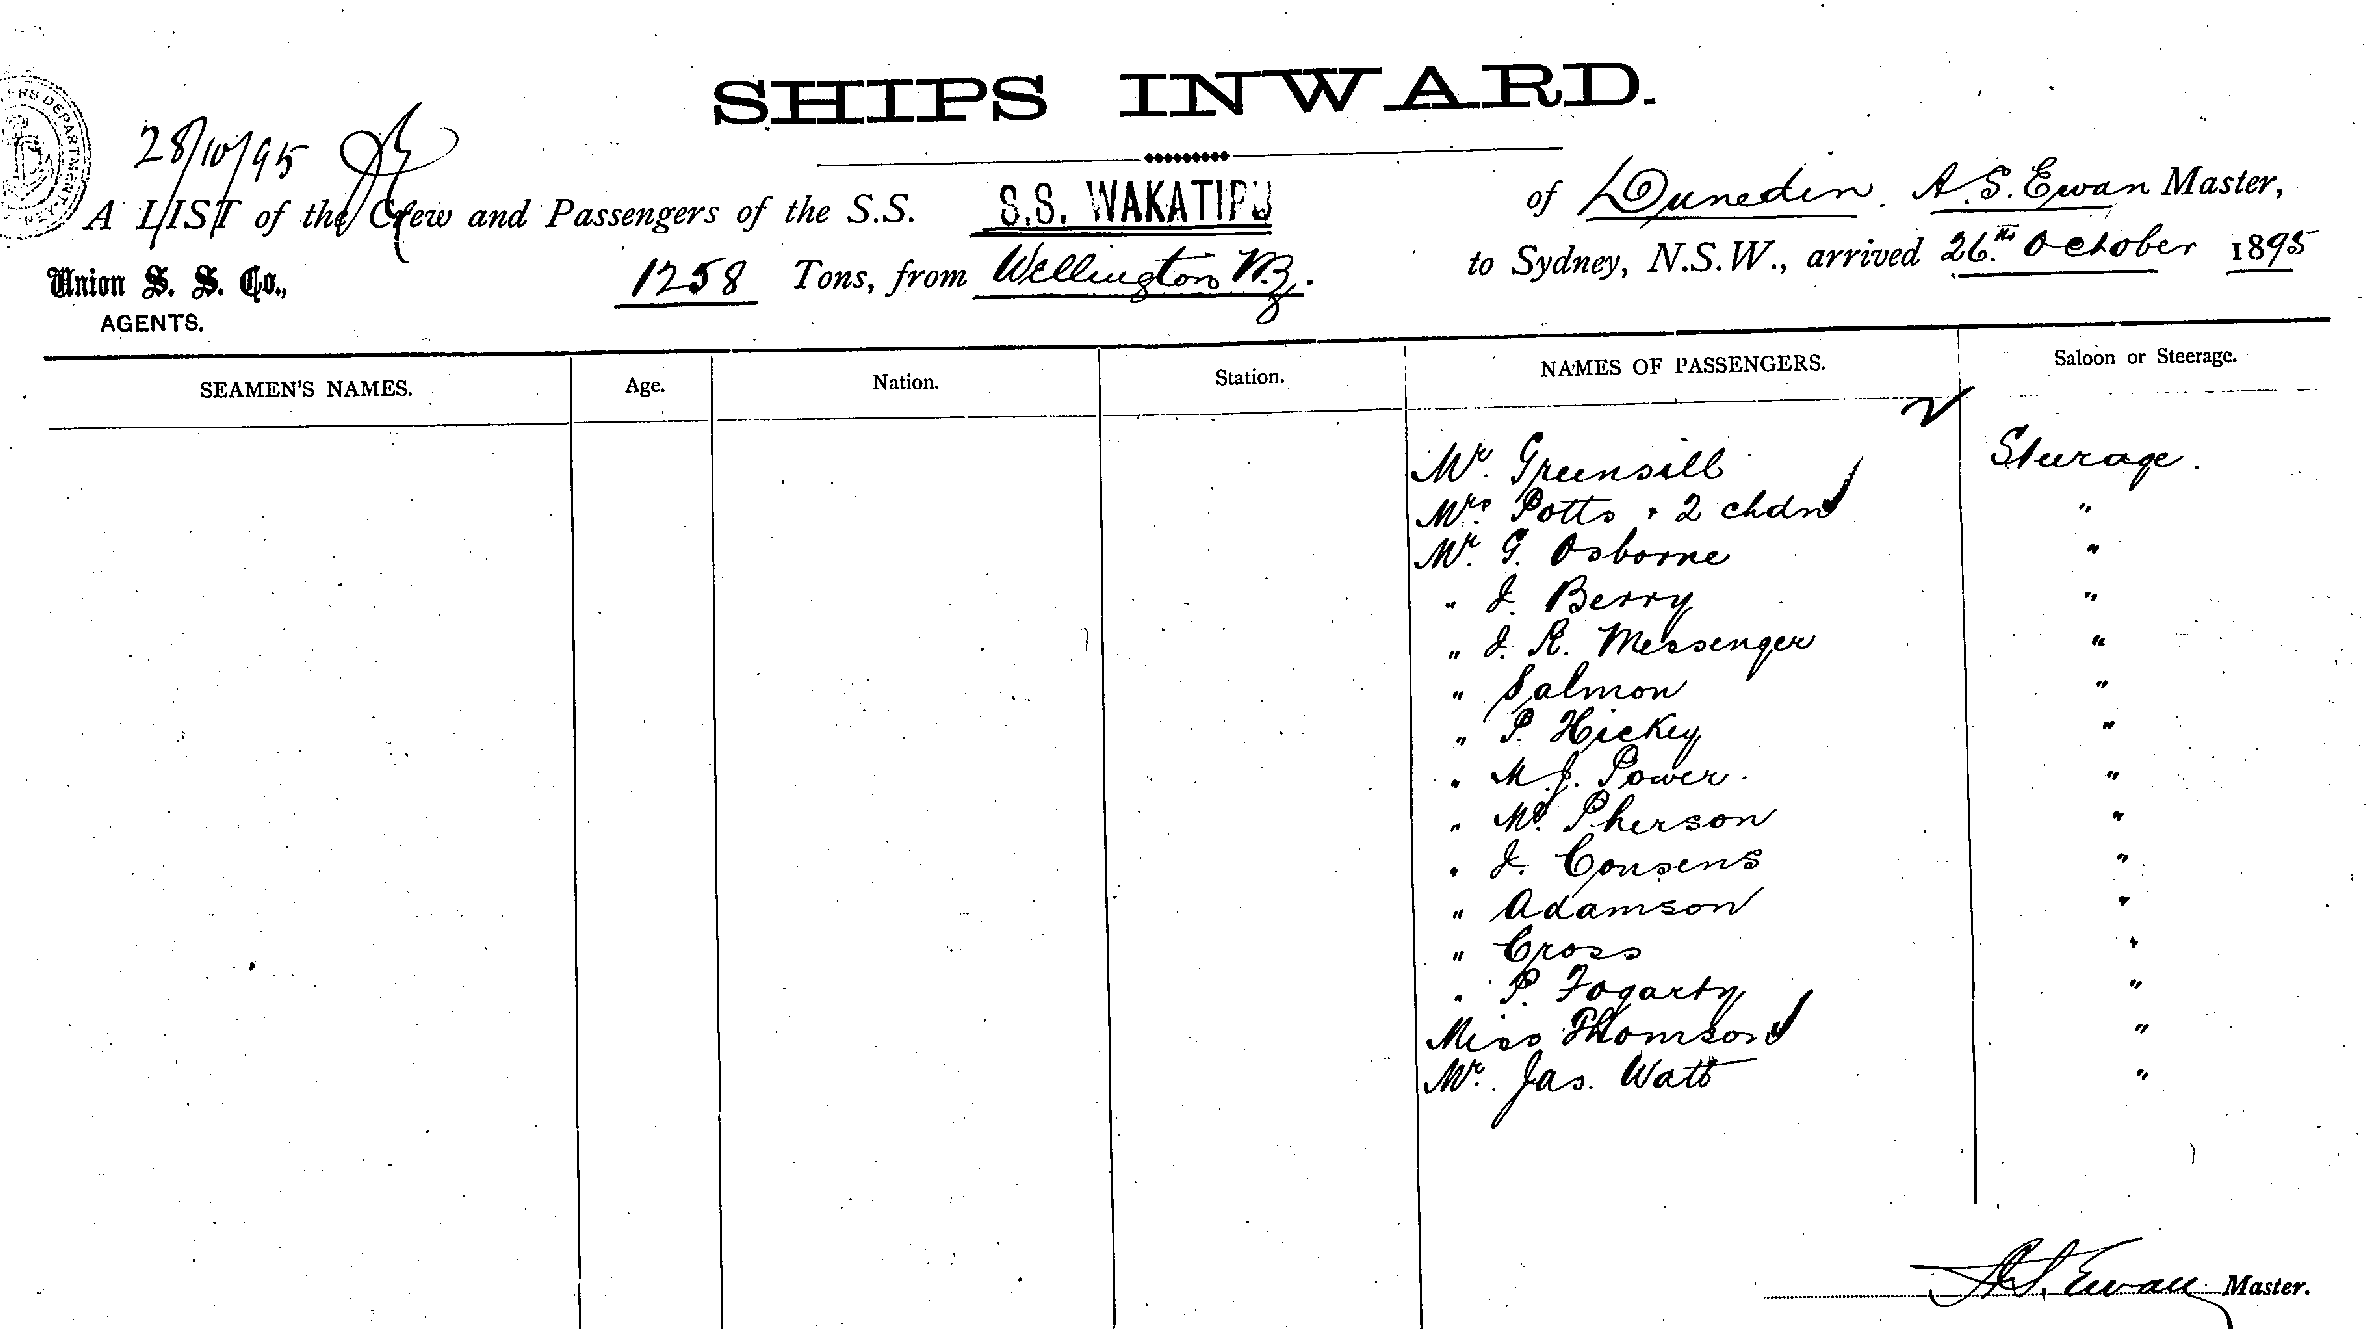 SHIPS INWARD.
28/10/95
A LIST of the Crew and Passengers of the S.S. S.S. WAKATIPU of Dunedin. A. S. Ewan Master,
Union S. S. Co., 1258 Tons, from Wellington N.Z. to Sydney, N.S.W., arrived 26.th October 1895
AGENTS.
SEAMEN'S NAMES. Age. Nation. Station. NAMES OF PASSENGERS. Saloon or Steerage.
Mr. Greensill Steerage.
Mrs. Potts + 2 chdn "
Mr. G. Osborne "
" J. Berry "
" J. R. Messenger "
" Salmon "
" P. Hickey "
" M. J. Power "
" Mc. Pherson "
" J. Cousens "
" Adamson "
" Cross "
" P. Fogarty "
Miss Thomson "
Mr. Jas. Watt "
A. S. Ewan Master.